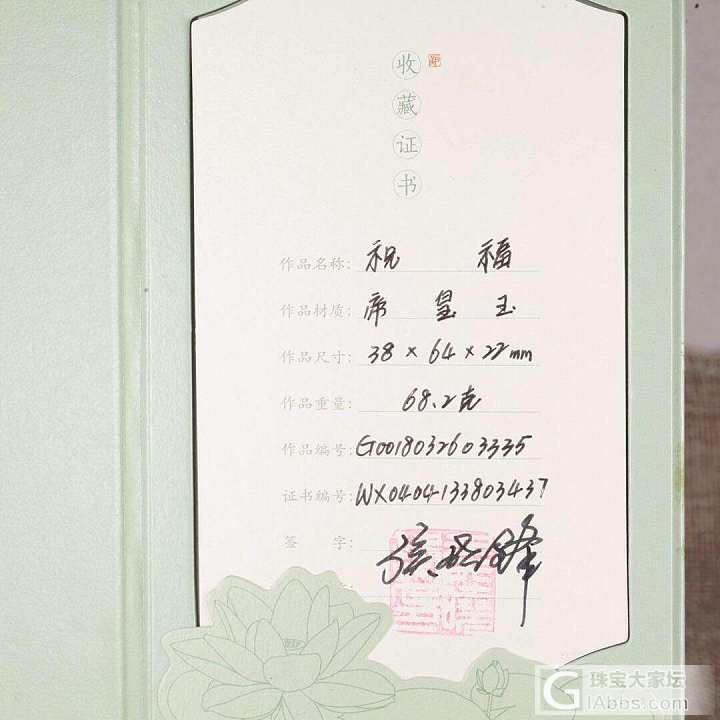 收藏证书
作品名称: 祝 福
作品材质: 帝皇玉
作品尺寸: 38×64×22mm
作品重量: 68.2克
作品编号: G0018032603335
证书编号: WX0404133803437
签 字:
珠宝大家坛
GIabbs.com